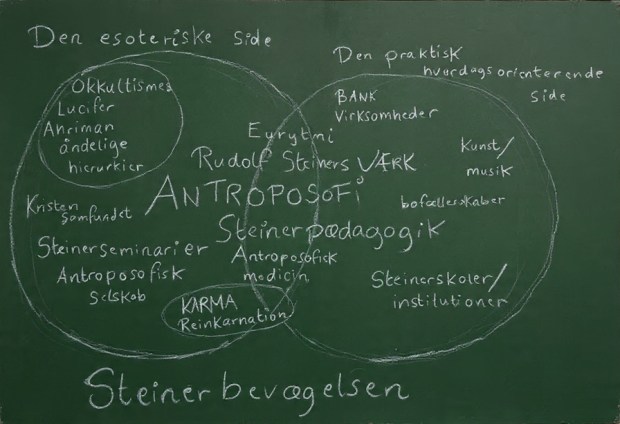 Den esoteriske side
Den praktisk
hverdagsorienterende
side
Okkultismes
Lucifer
Ahriman
åndelige
hierurkier
BANK
Virksomheder
Kunst/
musik
bofællesskaber
Eurytmi
Rudolf Steiners VÆRK
ANTROPOSOFi
Steinerpædagogik
Antroposofisk
medicin
Kristen
samfundet
Steinerseminarier
Antroposofisk
Selskab
KARMA
Reinkarnation
Steinerskoler/
institutioner
Steinerbevægelsen